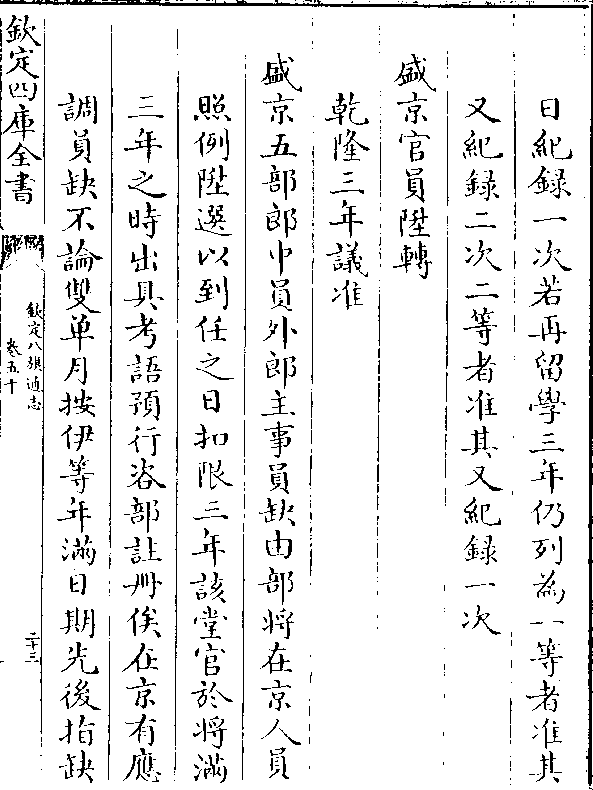 日紀録一次若再留學三年仍列為一等者准其
又紀録二次二等者准其又紀録一次
盛京官員陞轉
乾隆三年議准
盛京五部郎中員外郎主事員缺由部將在京人員
照例陞選以到任之日扣限三年該堂官於將滿
三年之時出具考語預行咨部註冊俟在京有應
調員缺不論雙单月按伊等年滿日期先後指缺
欽定四庫全書
欽定八旗通志
卷五十
二十三